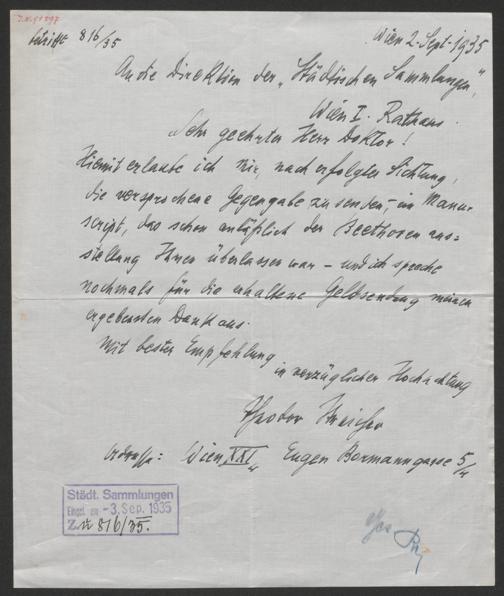 816/35
Wien 2. Sept. 1935
An die Direktion der „Städtischen Sammlungen,"
Wien I. Rathaus.
Sehr geehrter Herr Doktor!
Hiemit erlaube ich mir, nach erfolgter Sichtung,
die versprochene Gegengabe zu senden, – im Manu-
script, das schon anläßlich der Beethoven aus=
stellung Ihnen überlassen war – und ich spreche
nochmals für die erhaltene Geldsendung meinen
ergebensten Dank aus.
Mit bester Empfehlung
in vorzüglicher Hochachtung
Theodor Streicher
Adresse: Wien XXI/4 Eugen Bormanngasse 5/4
Städt. Sammlungen
Eingel. am -3. Sep. 1935
Z. 816/35.